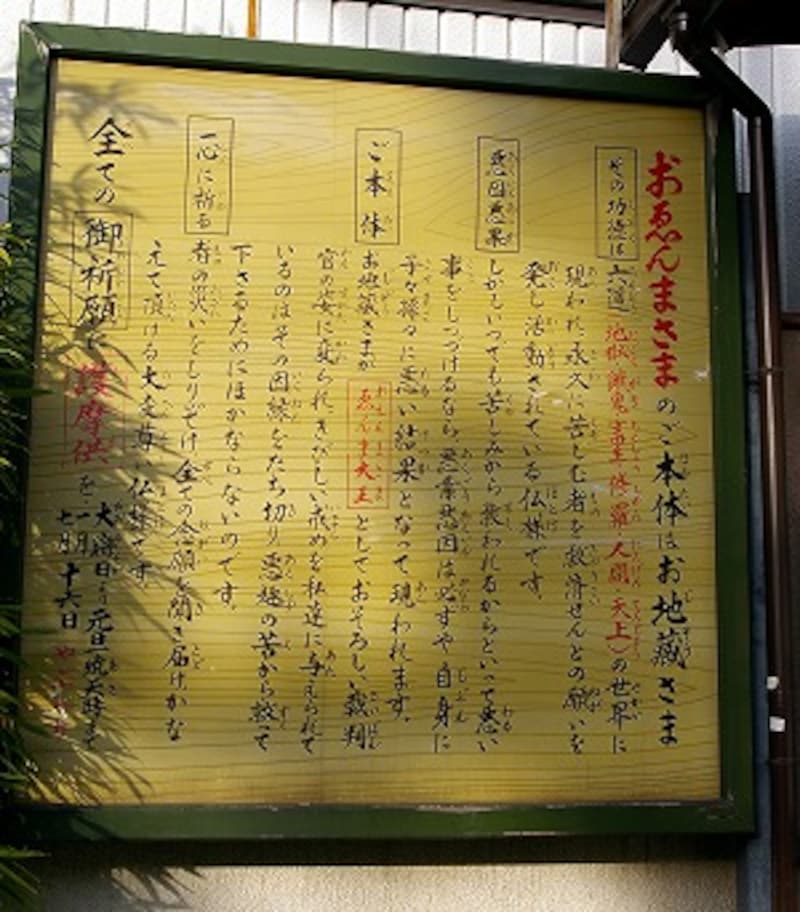 おゑんまさまのご本体はお地蔵さま
その功徳は六道(地獄 餓鬼 畜生 修羅 人間 天上)の世界に
現われ永久に苦しむ者を救済せんとの願いを
発し活動されている仏様です。
悪因悪果 しかしいつでも苦しみから救われるからといって悪い
事をしつづけるなら、悪業悪因は必ずや自身に
子々孫々に悪い結果となって現われます。
ご本体 お地蔵さまが ゑんま大王 としておそろしい裁判
官の姿に変られ、きびしい戒めを私達に与えられて
いるのはその因縁をたち切り、悪趣の苦から救って
下さるためにほかならないのです。
一心に祈る 有の災いをしりぞけ、全ての念願を聞き届けかな
えて頂ける大変尊い仏様です。
全ての御祈願に護摩供を 大晦日より元旦 まで
一月 七月 十六日